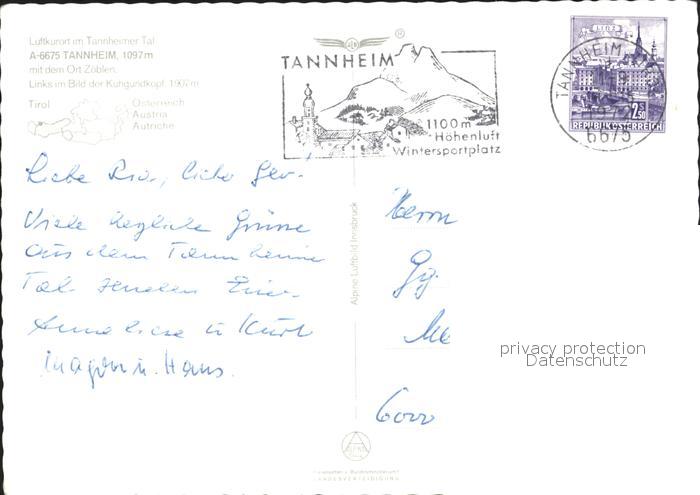 Luftkurort im Tannheimer Tal
A-6675 TANNHEIM, 1097m
mit dem Ort Zöblen.
Links im Bild der Kuhgundkopf, 1907m
Tirol
Österreich
Austria
Autriche
TANNHEIM
1100m
Höhenluft
Wintersportplatz
TANNHEIM
6675
LINZ
2.50
REPUBLIK ÖSTERREICH
Liebe liebe
Viele herzliche Grüsse
aus dem Tannheimer
Tal senden Euer
Anneliese u Kurt
u. Hans.
Alpine Luftbild Innsbruck
Herrn
privacy protection
Datenschutz
LANDESVERTEIDIGUNG